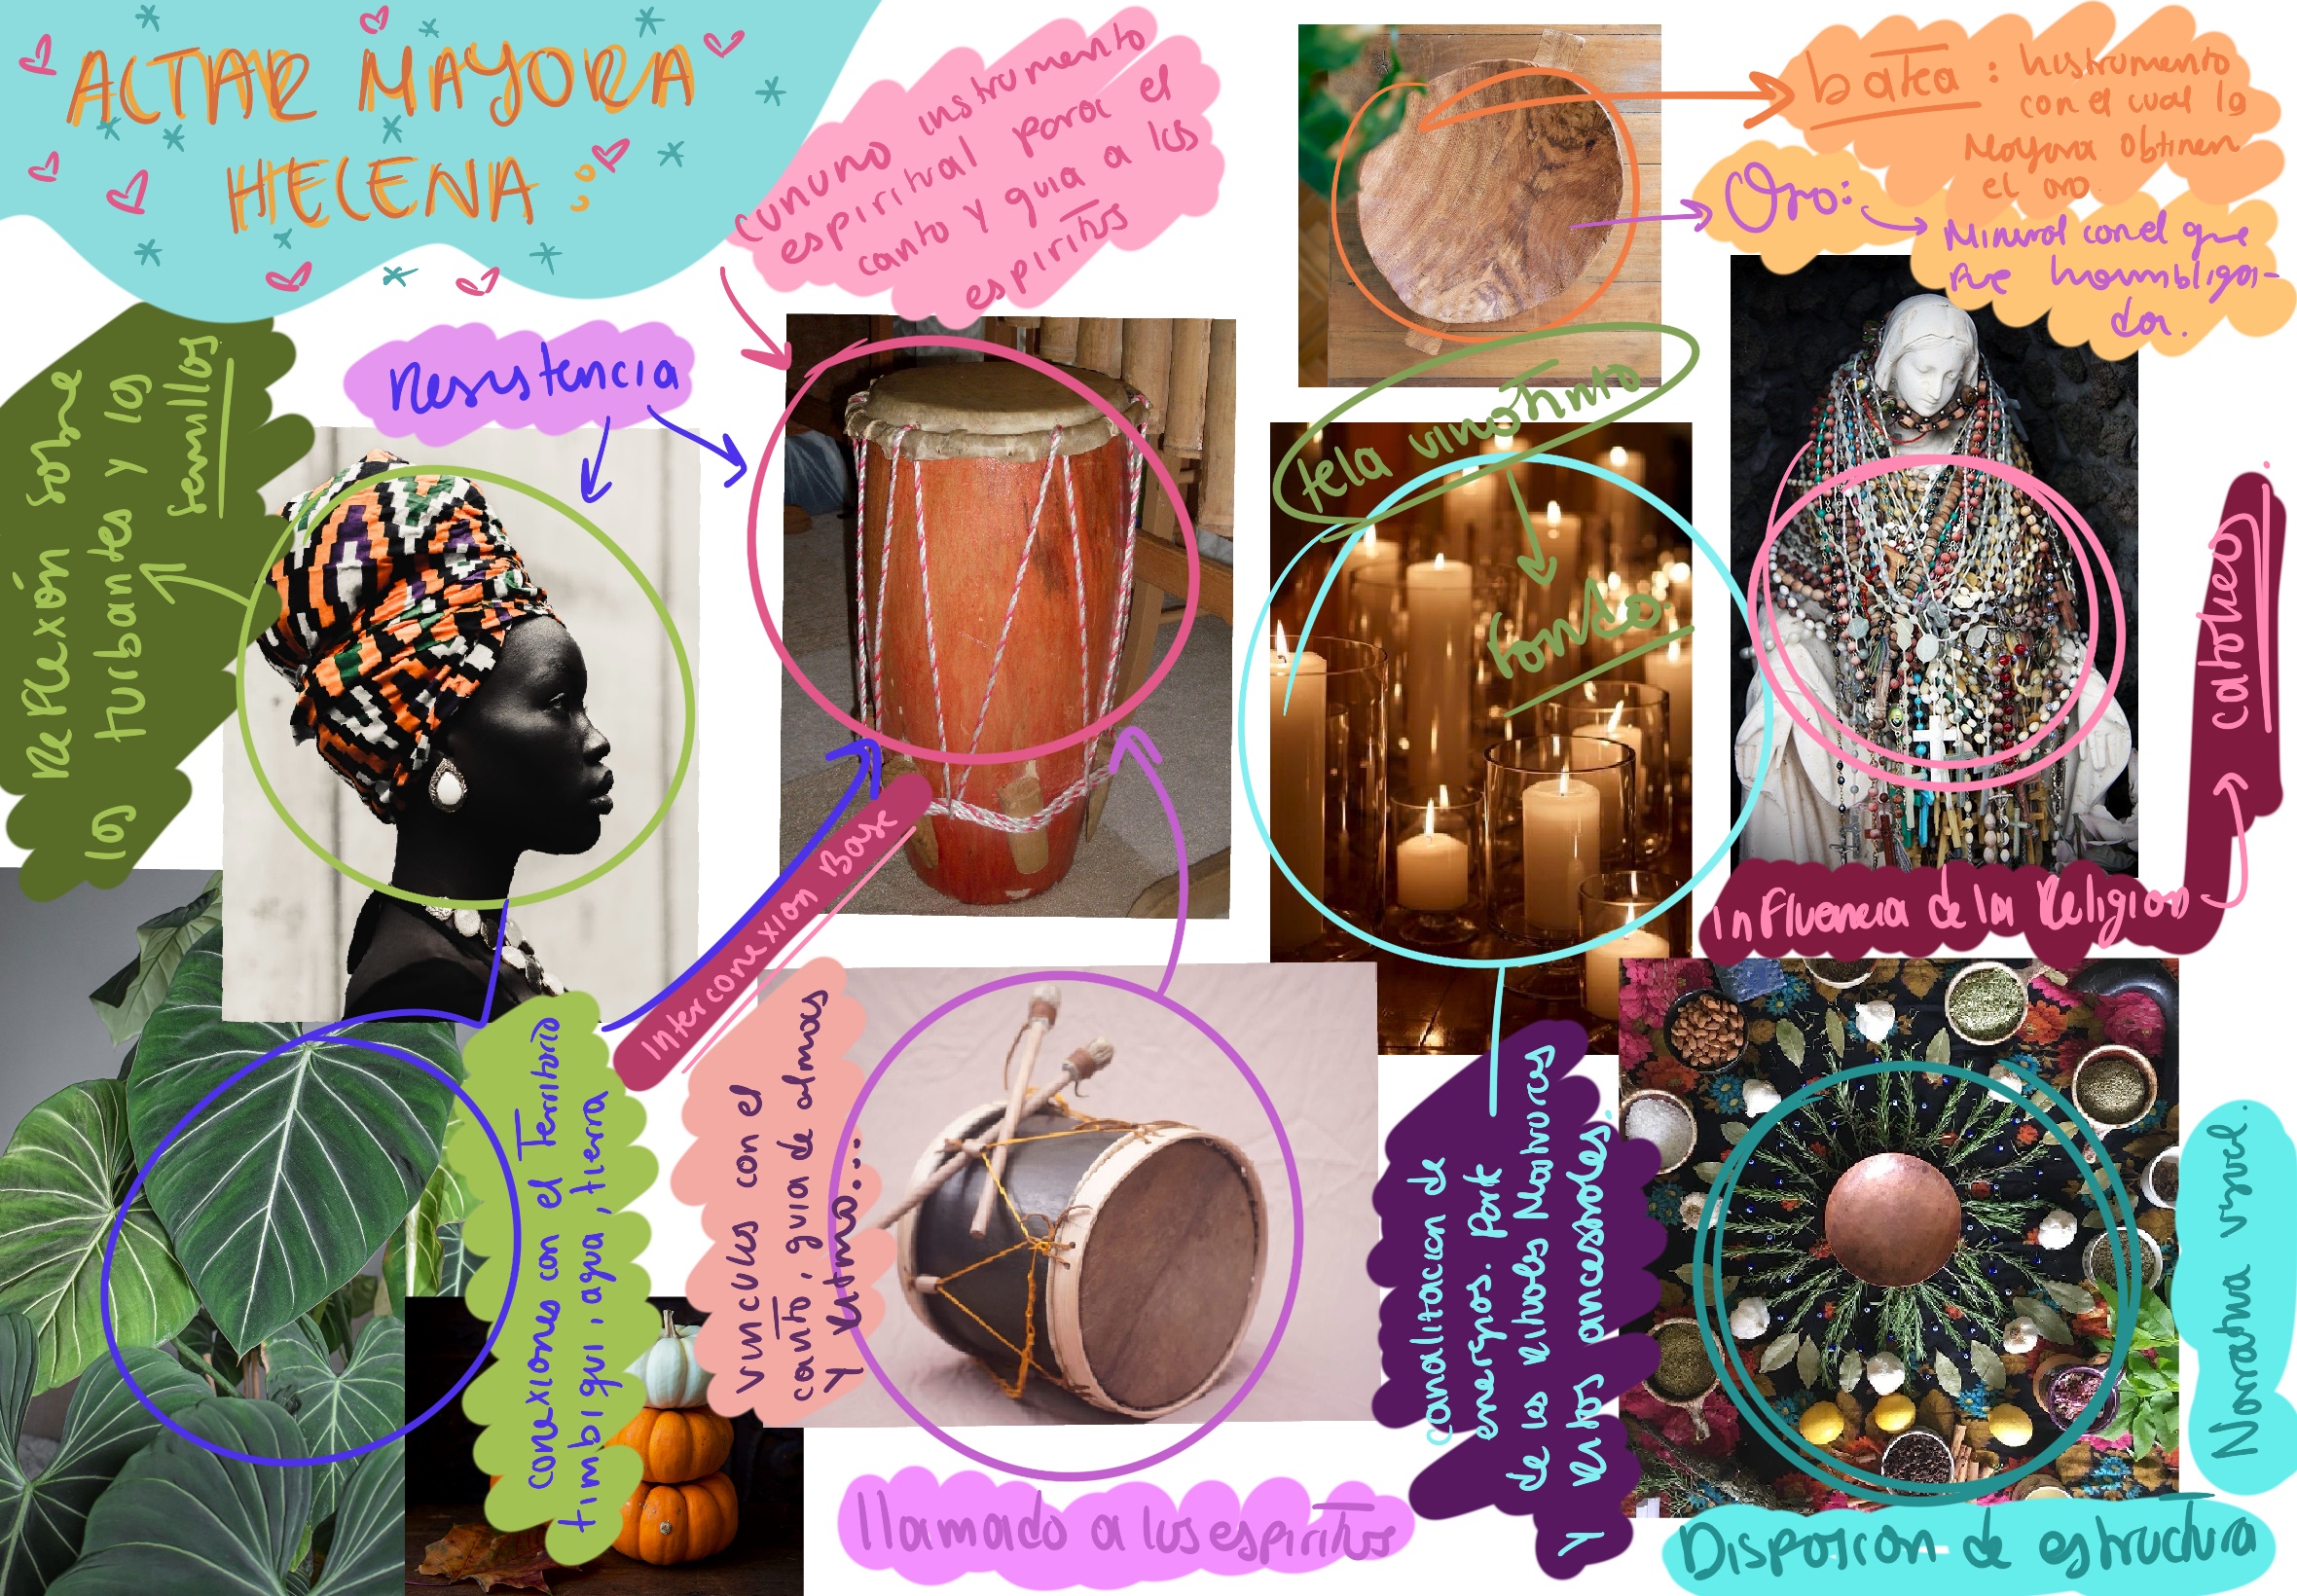 ALTAR MAYORA
HELENA
cununo instrumento
espiritual para el
canto y guia a los
espiritus
batea : Instrumento
con el cual la
Mayora obtinen
el oro.
Oro:
Mineral con el que
fue houmbliga-
da.
Resistencia
Reflexión sobre
los turbantes y las
semillas
tela vinotinto
fondo.
catolico
Influencia de la Religion
Interconexion Base
conexiones con el Territorio
timbiqui, agua, tierra
vinculos con el
canto, guia de almas
y ritmo...
canalitacion de
energias. Parte
de los Rituales Mortuorios
y Ritos ancestrales.
Narrativa visuel.
llamado a los espiritus
Disposicion de estructura